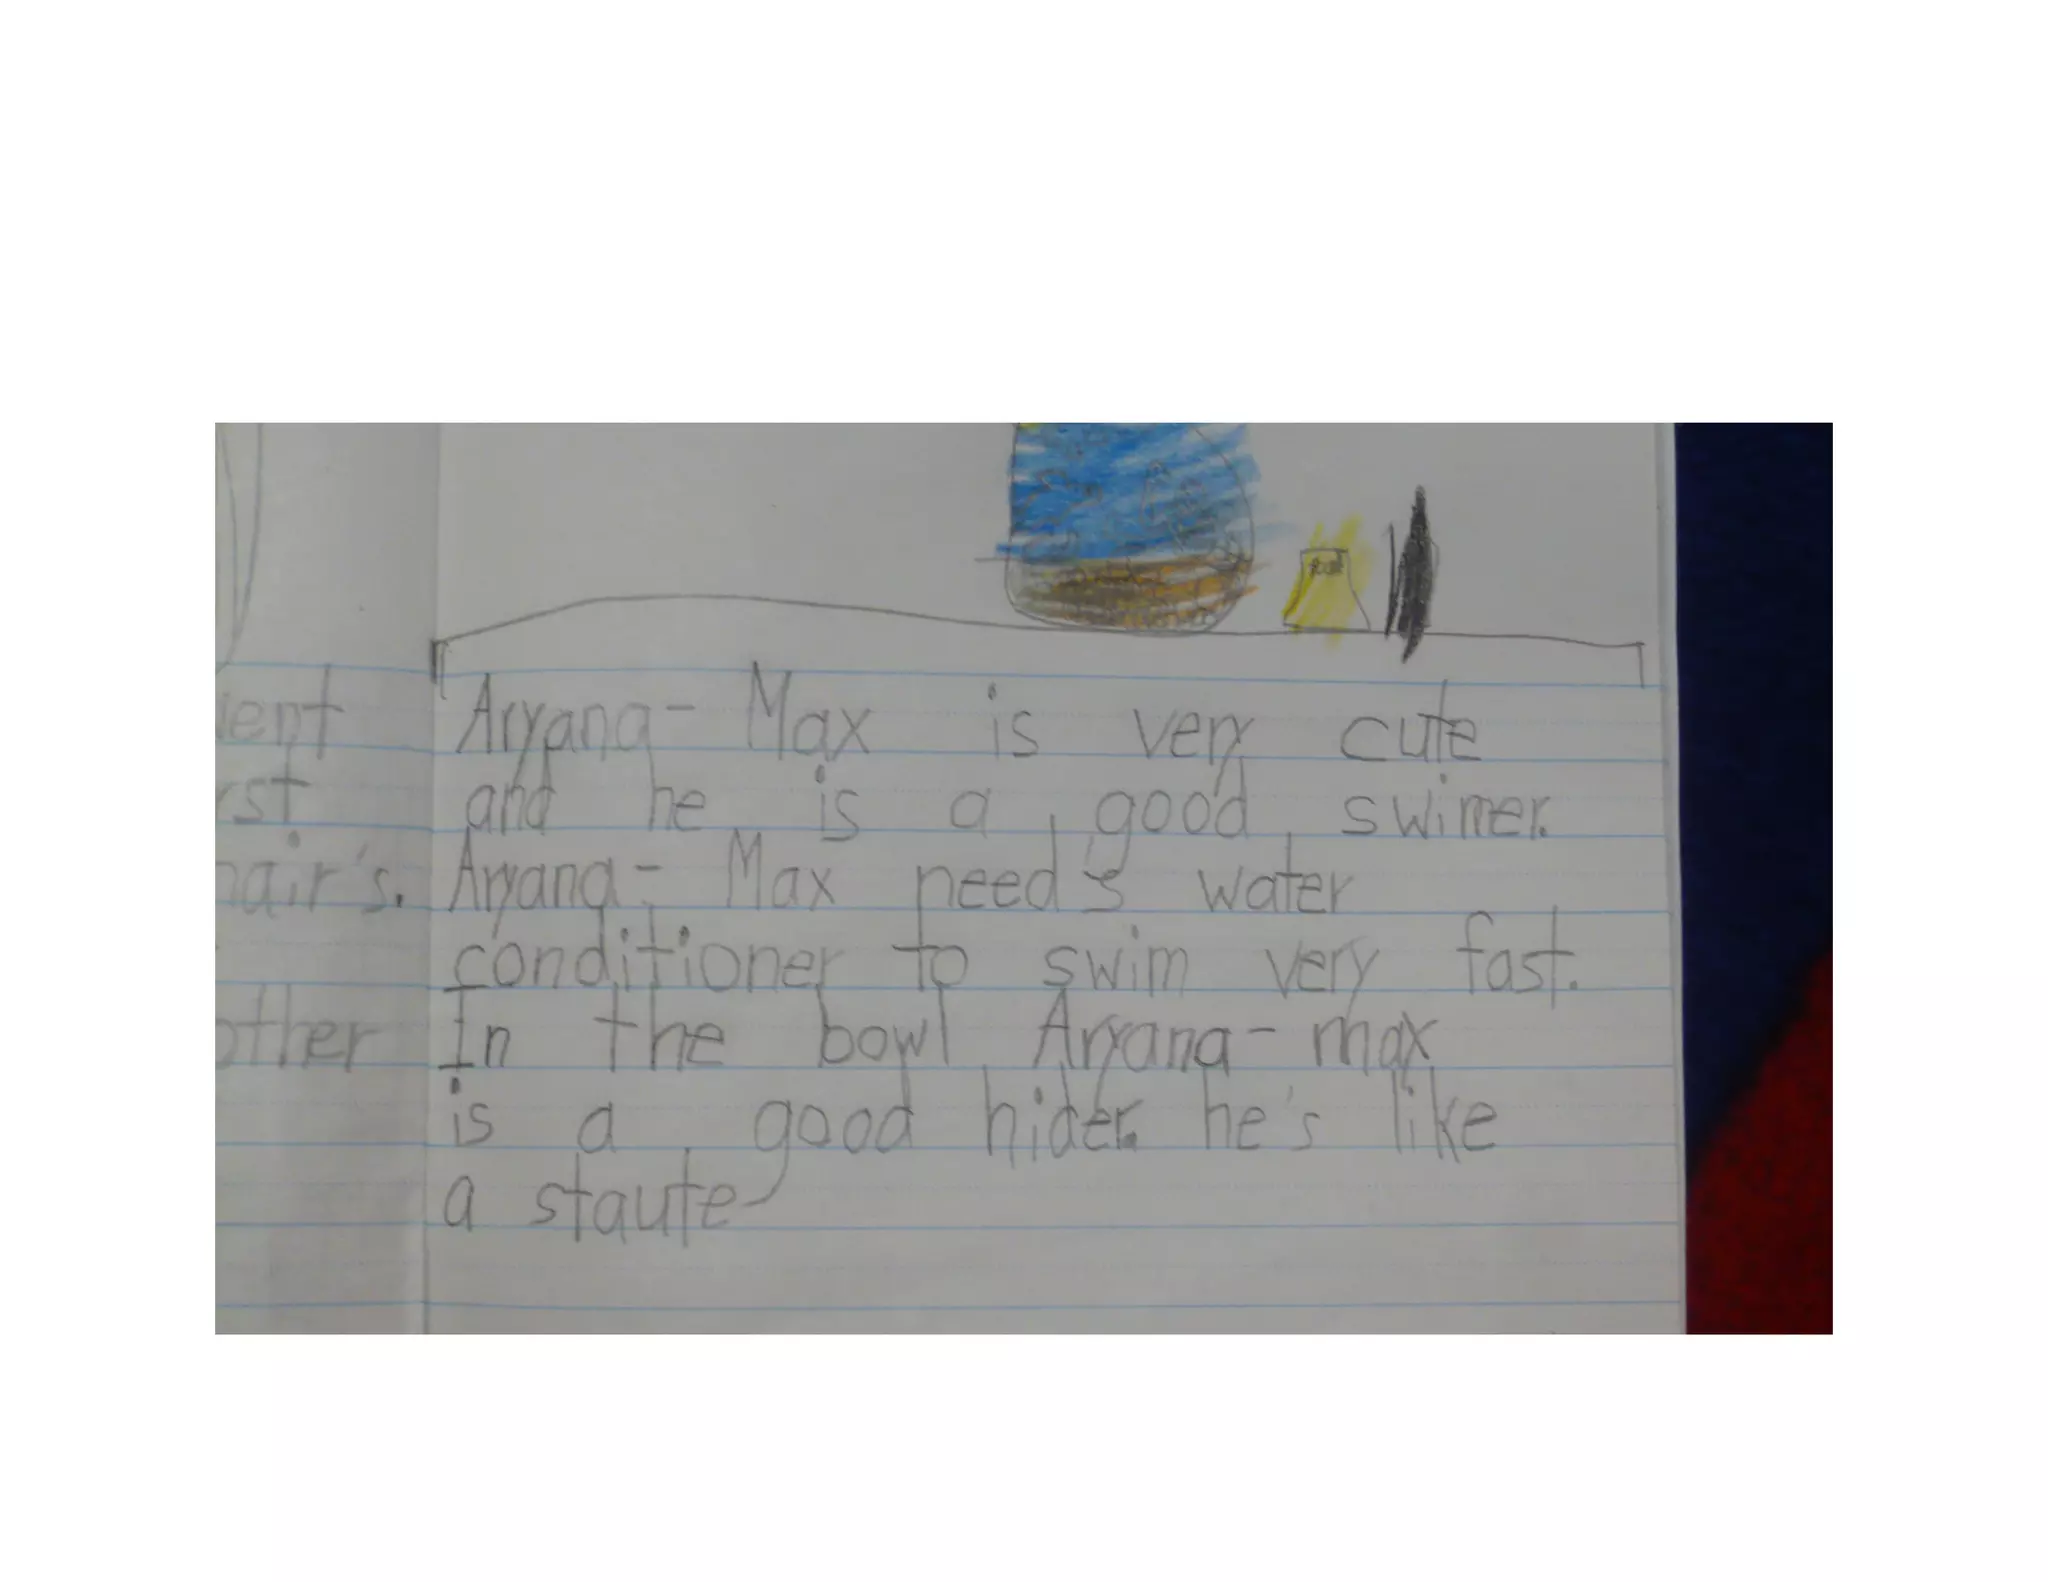 Aryana- Max is very cute
and he is a good swimer.
Aryana- Max needs water
conditioner to swim very fast.
In the bowl Aryana- max
is a good hider. he's like
a staute
other